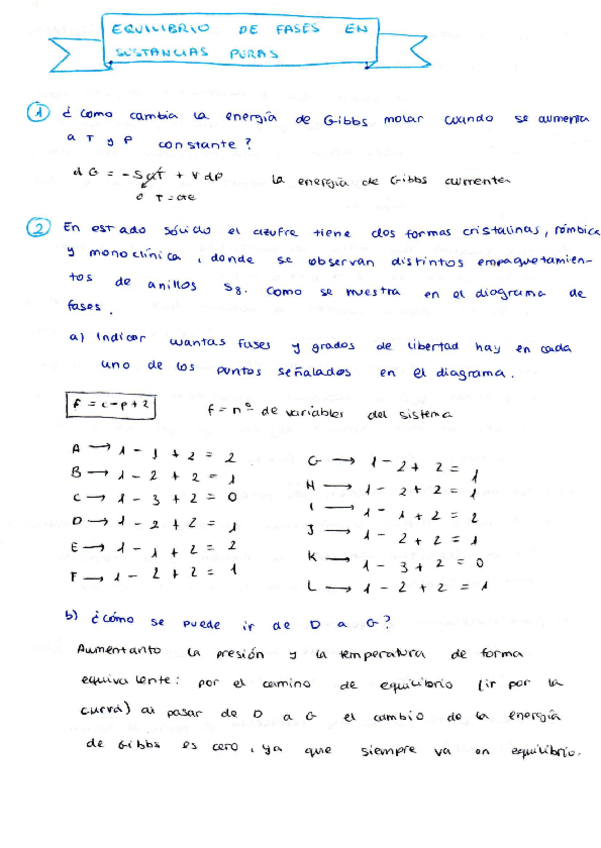 EQUILIBRIO DE FASES EN
SUSTANCIAS PURAS
1 ¿ Como cambia la energía de Gibbs molar cuando se aumenta
a T y P constante?
dG = -SdT + Vdp la energía de Gibbs aumenta
0 T = cte
2 En estado sólido el azufre tiene dos formas cristalinas, rómbica
y monoclínica, donde se observan distintos empaquetamien-
tos de anillos S8. Como se muestra en el diagrama de
fases.
a) Indicar cuantas fases y grados de libertad hay en cada
uno de los puntos señalados en el diagrama.
f = c-p+2 f = nº de variables del sistema
A → 1 - 1 + 2 = 2
B → 1 - 2 + 2 = 1
C → 1 - 3 + 2 = 0
D → 1 - 2 + 2 = 1
E → 1 - 1 + 2 = 2
F → 1 - 2 + 2 = 1
G → 1 - 2 + 2 = 1
H → 1 - 2 + 2 = 1
I → 1 - 1 + 2 = 2
J → 1 - 2 + 2 = 1
K → 1 - 3 + 2 = 0
L → 1 - 2 + 2 = 1
b) ¿Cómo se puede ir de D a G?
Aumentanto la presión y la temperatura de forma
equivalente: por el camino de equilibrio (ir por la
curva) al pasar de D a G el cambio de la energía
de Gibbs es cero, ya que siempre va en equilibrio.